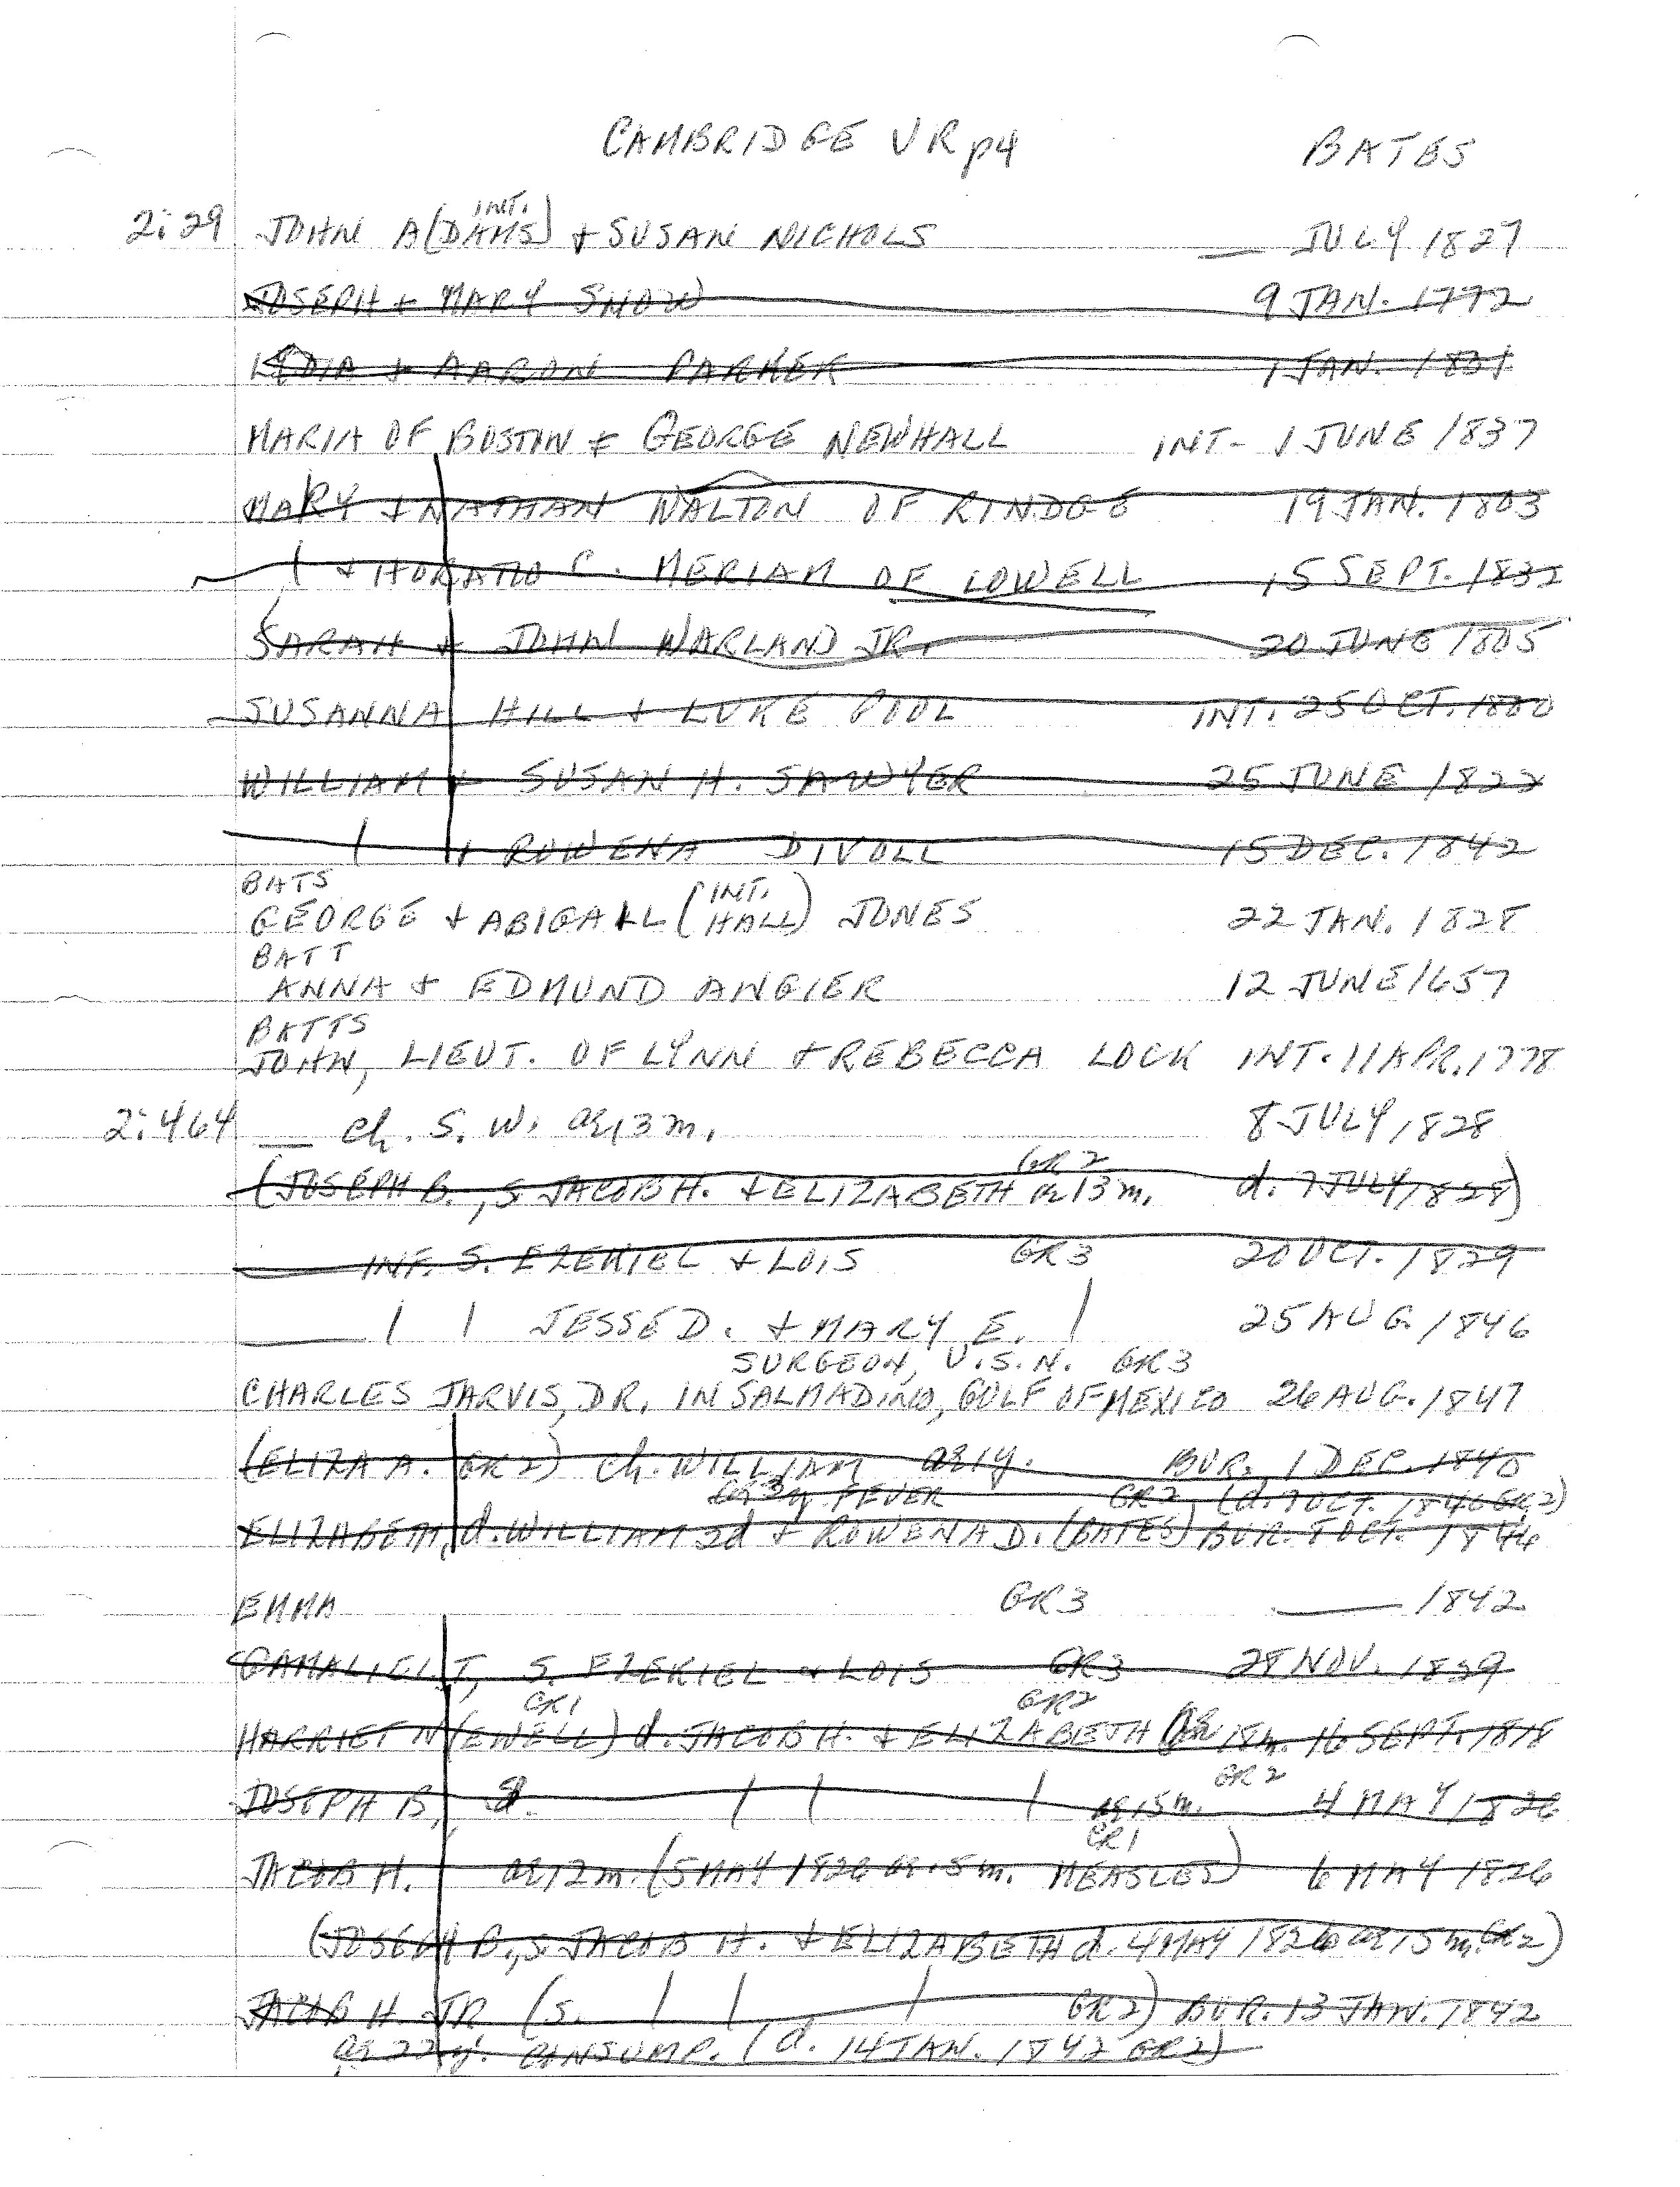 CAMBRIDGE VR p4 BATES
2:29 JOHN A(DAMS INT.) + SUSAN NICHOLS — JULY 1827
JOSEPH + MARY SNOW 9 JAN. 1772
LYDIA + AARON PARKER 1 JAN. 1801
MARIA OF BOSTON + GEORGE NEWHALL INT- 1 JUNE 1837
MARY + NATHAN WALTON OF RINDGE 19 JAN. 1803
| + HORATIO C. MERIAM OF LOWELL 15 SEPT. 1832
SARAH + JOHN WARLAND JR. 20 JUNE 1805
SUSANNA HILL + LUKE POOL INT. 25 OCT. 1800
WILLIAM + SUSAN H. SAWYER 25 JUNE 1822
| + ROWENA DIVOLL 15 DEC. 1842
BATS
GEORGE + ABIGAIL (INT. HALL) JONES 22 JAN. 1828
BATT
ANNA + EDMUND ANGIER 12 JUNE 1657
BATTS
JOHN, LIEUT. OF LYNN + REBECCA LOCK INT. 11 APR. 1778
2:464 — ch. S. W. ae 13 m. 8 JULY 1828
(JOSEPH B., S. JACOB H. + ELIZABETH GR2 ae 13 m. d. 7 JULY 1828)
— INF. S. EZEKIEL + LOIS GR3 20 OCT. 1829
— | | JESSE D. + MARY E. | 25 AUG. 1846
SURGEON, U.S.N. GR3
CHARLES JARVIS, DR. IN SALMADINO, GULF OF MEXICO 26 AUG. 1847
(ELIZA A. GR2) ch. WILLIAM ae 1 y. BUR. 1 DEC. 1840
ae 3 y FEVER GR2 (d. 7 OCT. 1846 GR2)
ELIZABETH, d. WILLIAM 2d + ROWENA D. (BATES) BUR. 8 OCT. 1846
EMMA GR3 — 1842
GAMALIEL T, S. EZEKIEL + LOIS GR3 28 NOV. 1839
CR1 GR2
HARRIET N(EWELL) d. JACOB H. + ELIZABETH ae 18 m. 16 SEPT. 1818
GR2
JOSEPH B, S. | | | ae 15 m. 4 MAY 1826
CR1
JACOB H. ae 12 m. (5 MAY 1826 ae 15 m. MEASLES) 6 MAY 1826
(JOSEPH B., S. JACOB H. + ELIZABETH d. 4 MAY 1826 ae 15 m. GR2)
JACOB H. JR (S. | | | GR2) BUR. 13 JAN. 1842
ae 22 y. CONSUMP. (d. 14 JAN. 1842 GR2)